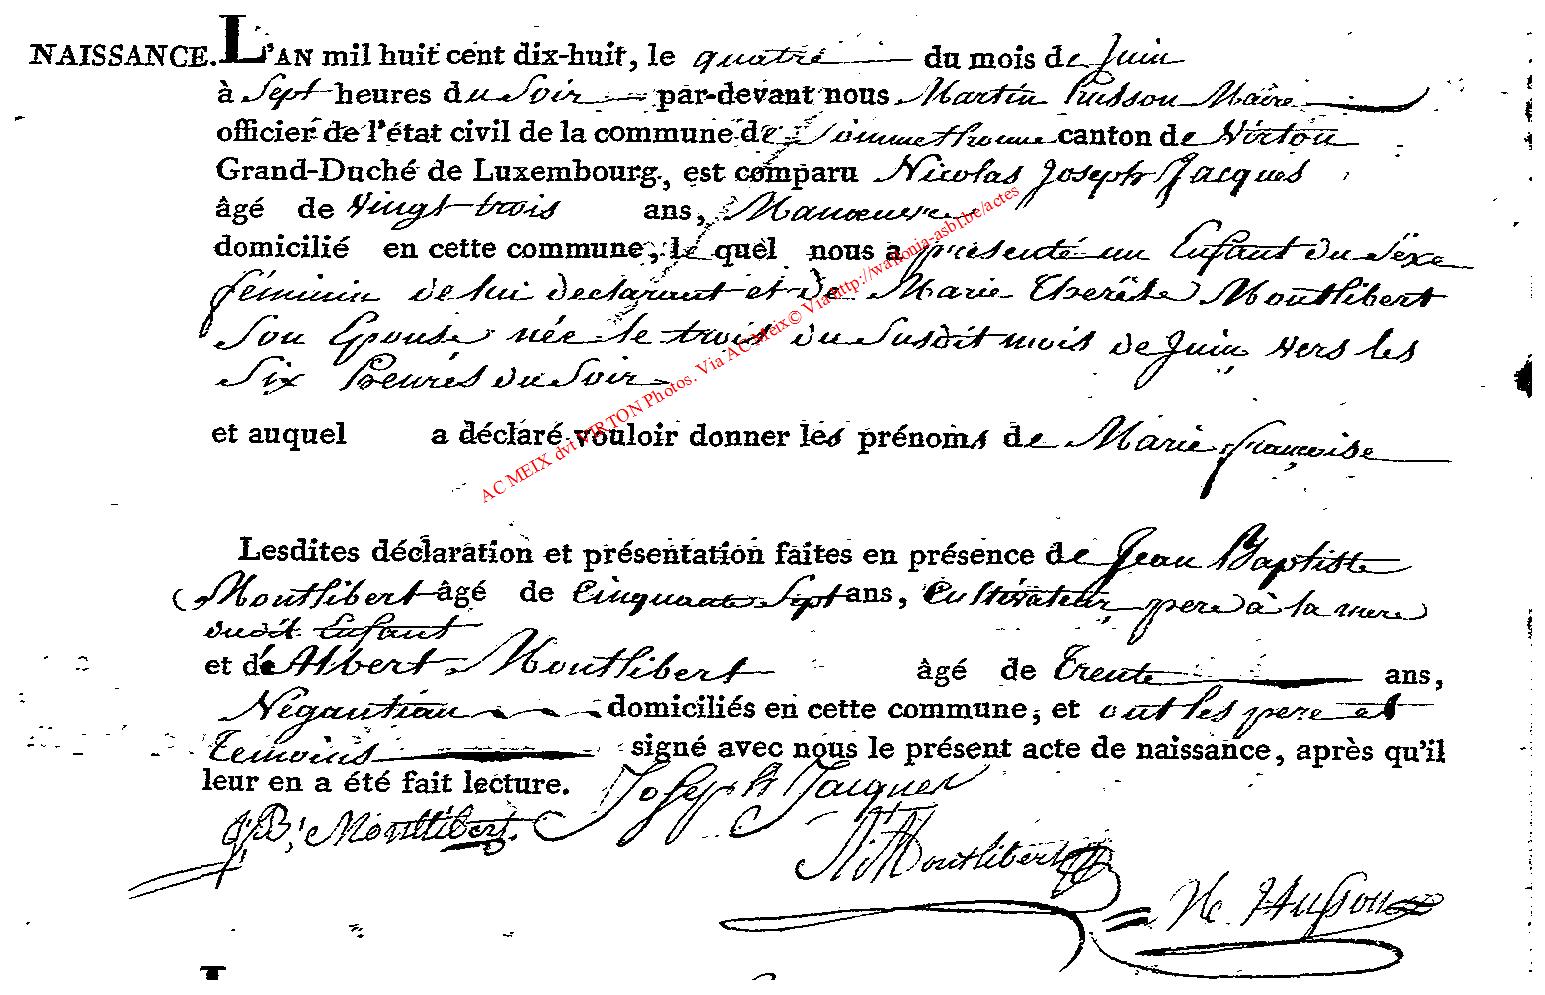 NAISSANCE. L'AN mil huit cent dix-huit, le quatre du mois de Juin
à Sept heures du Soir par-devant nous Martin husson Maire
officier de l'état civil de la commune de Sommethonne canton de Virton
Grand-Duché de Luxembourg, est comparu Nicolas Joseph Jacques
âgé de Vingt trois ans, Manœuvre
domicilié en cette commune, le quel nous a présenté un Enfant du Sexe
féminin de lui declarant et de Marie Therése Montlibert
Son Epouse née le trois du Susdit mois de Juin vers les
Six heures du Soir
et auquel a déclaré vouloir donner les prénoms de Marie françoise
Lesdites déclaration et présentation faites en présence de Jean Baptiste
Montlibert âgé de Cinquante Sept ans, Cultivateur pere à la mere
dudit Enfant
et de Albert Montlibert âgé de Trente ans,
Négautian domiciliés en cette commune, et ont les pere et
Temoins signé avec nous le présent acte de naissance, après qu'il
leur en a été fait lecture. Joseph Jacques
J B Montlibert
Montlibert
Husson
AC MEIX dvt VIRTON Photos. Via AC Meix© Via http://wallonia-asbl.be/actes